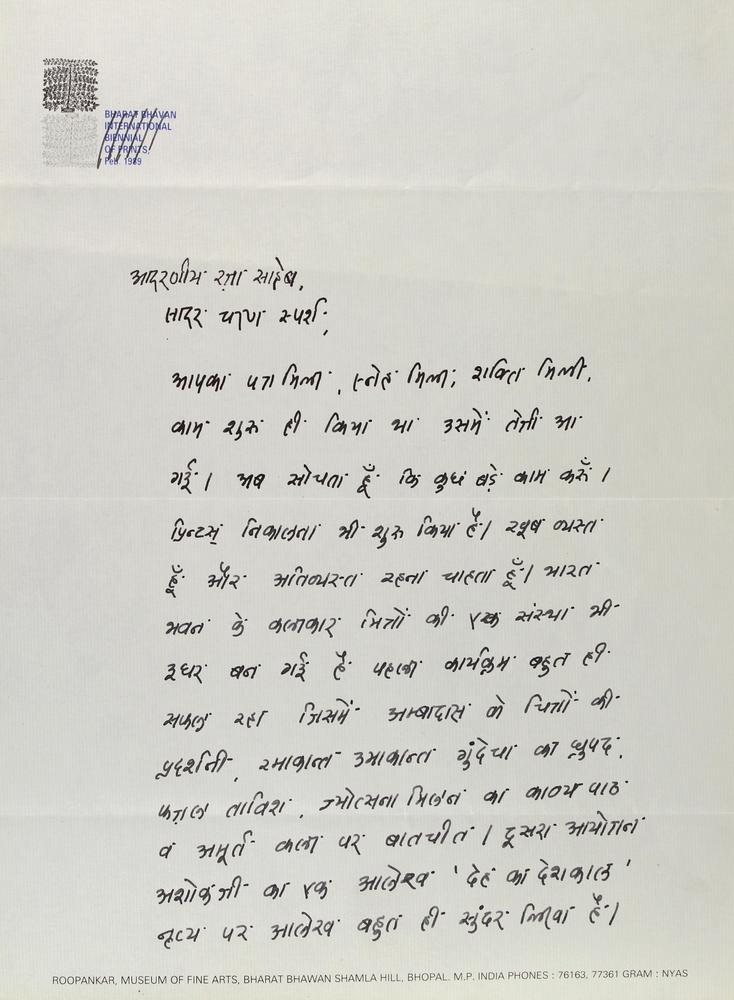 BHARAT BHAVAN
INTERNATIONAL
BIENNIAL
OF PRINTS,
Feb. 1989
आदरणीय रज़ा साहेब,
सादर चरण स्पर्श,
आपका पत्र मिला, स्नेह मिला, शक्ति मिली,
काम शुरू ही किया था उसमें तेज़ी आ
गई। अब सोचता हूँ कि कुछ बड़े काम करूँ।
प्रिन्ट्स निकालना भी शुरू किया है। खूब व्यस्त
हूँ और अतिव्यस्त रहना चाहता हूँ। भारत
भवन के कलाकार मित्रों की एक संस्था भी
इधर बन गई है पहला कार्यक्रम बहुत ही
सफल रहा जिसमें अम्बादास के चित्रों की
प्रदर्शनी, रमाकान्त उमाकान्त गुंदेचा का ध्रुपद,
फज़ल ताबिश, ज्योत्सना मिलन का काव्य पाठ
व अमूर्त कला पर बातचीत। दूसरा आयोजन
अशोक जी का एक आलेख 'देह का देशकाल'
नृत्य पर आलेख बहुत ही सुंदर लिखा है।
ROOPANKAR, MUSEUM OF FINE ARTS, BHARAT BHAWAN SHAMLA HILL, BHOPAL. M.P. INDIA PHONES : 76163, 77361 GRAM : NYAS